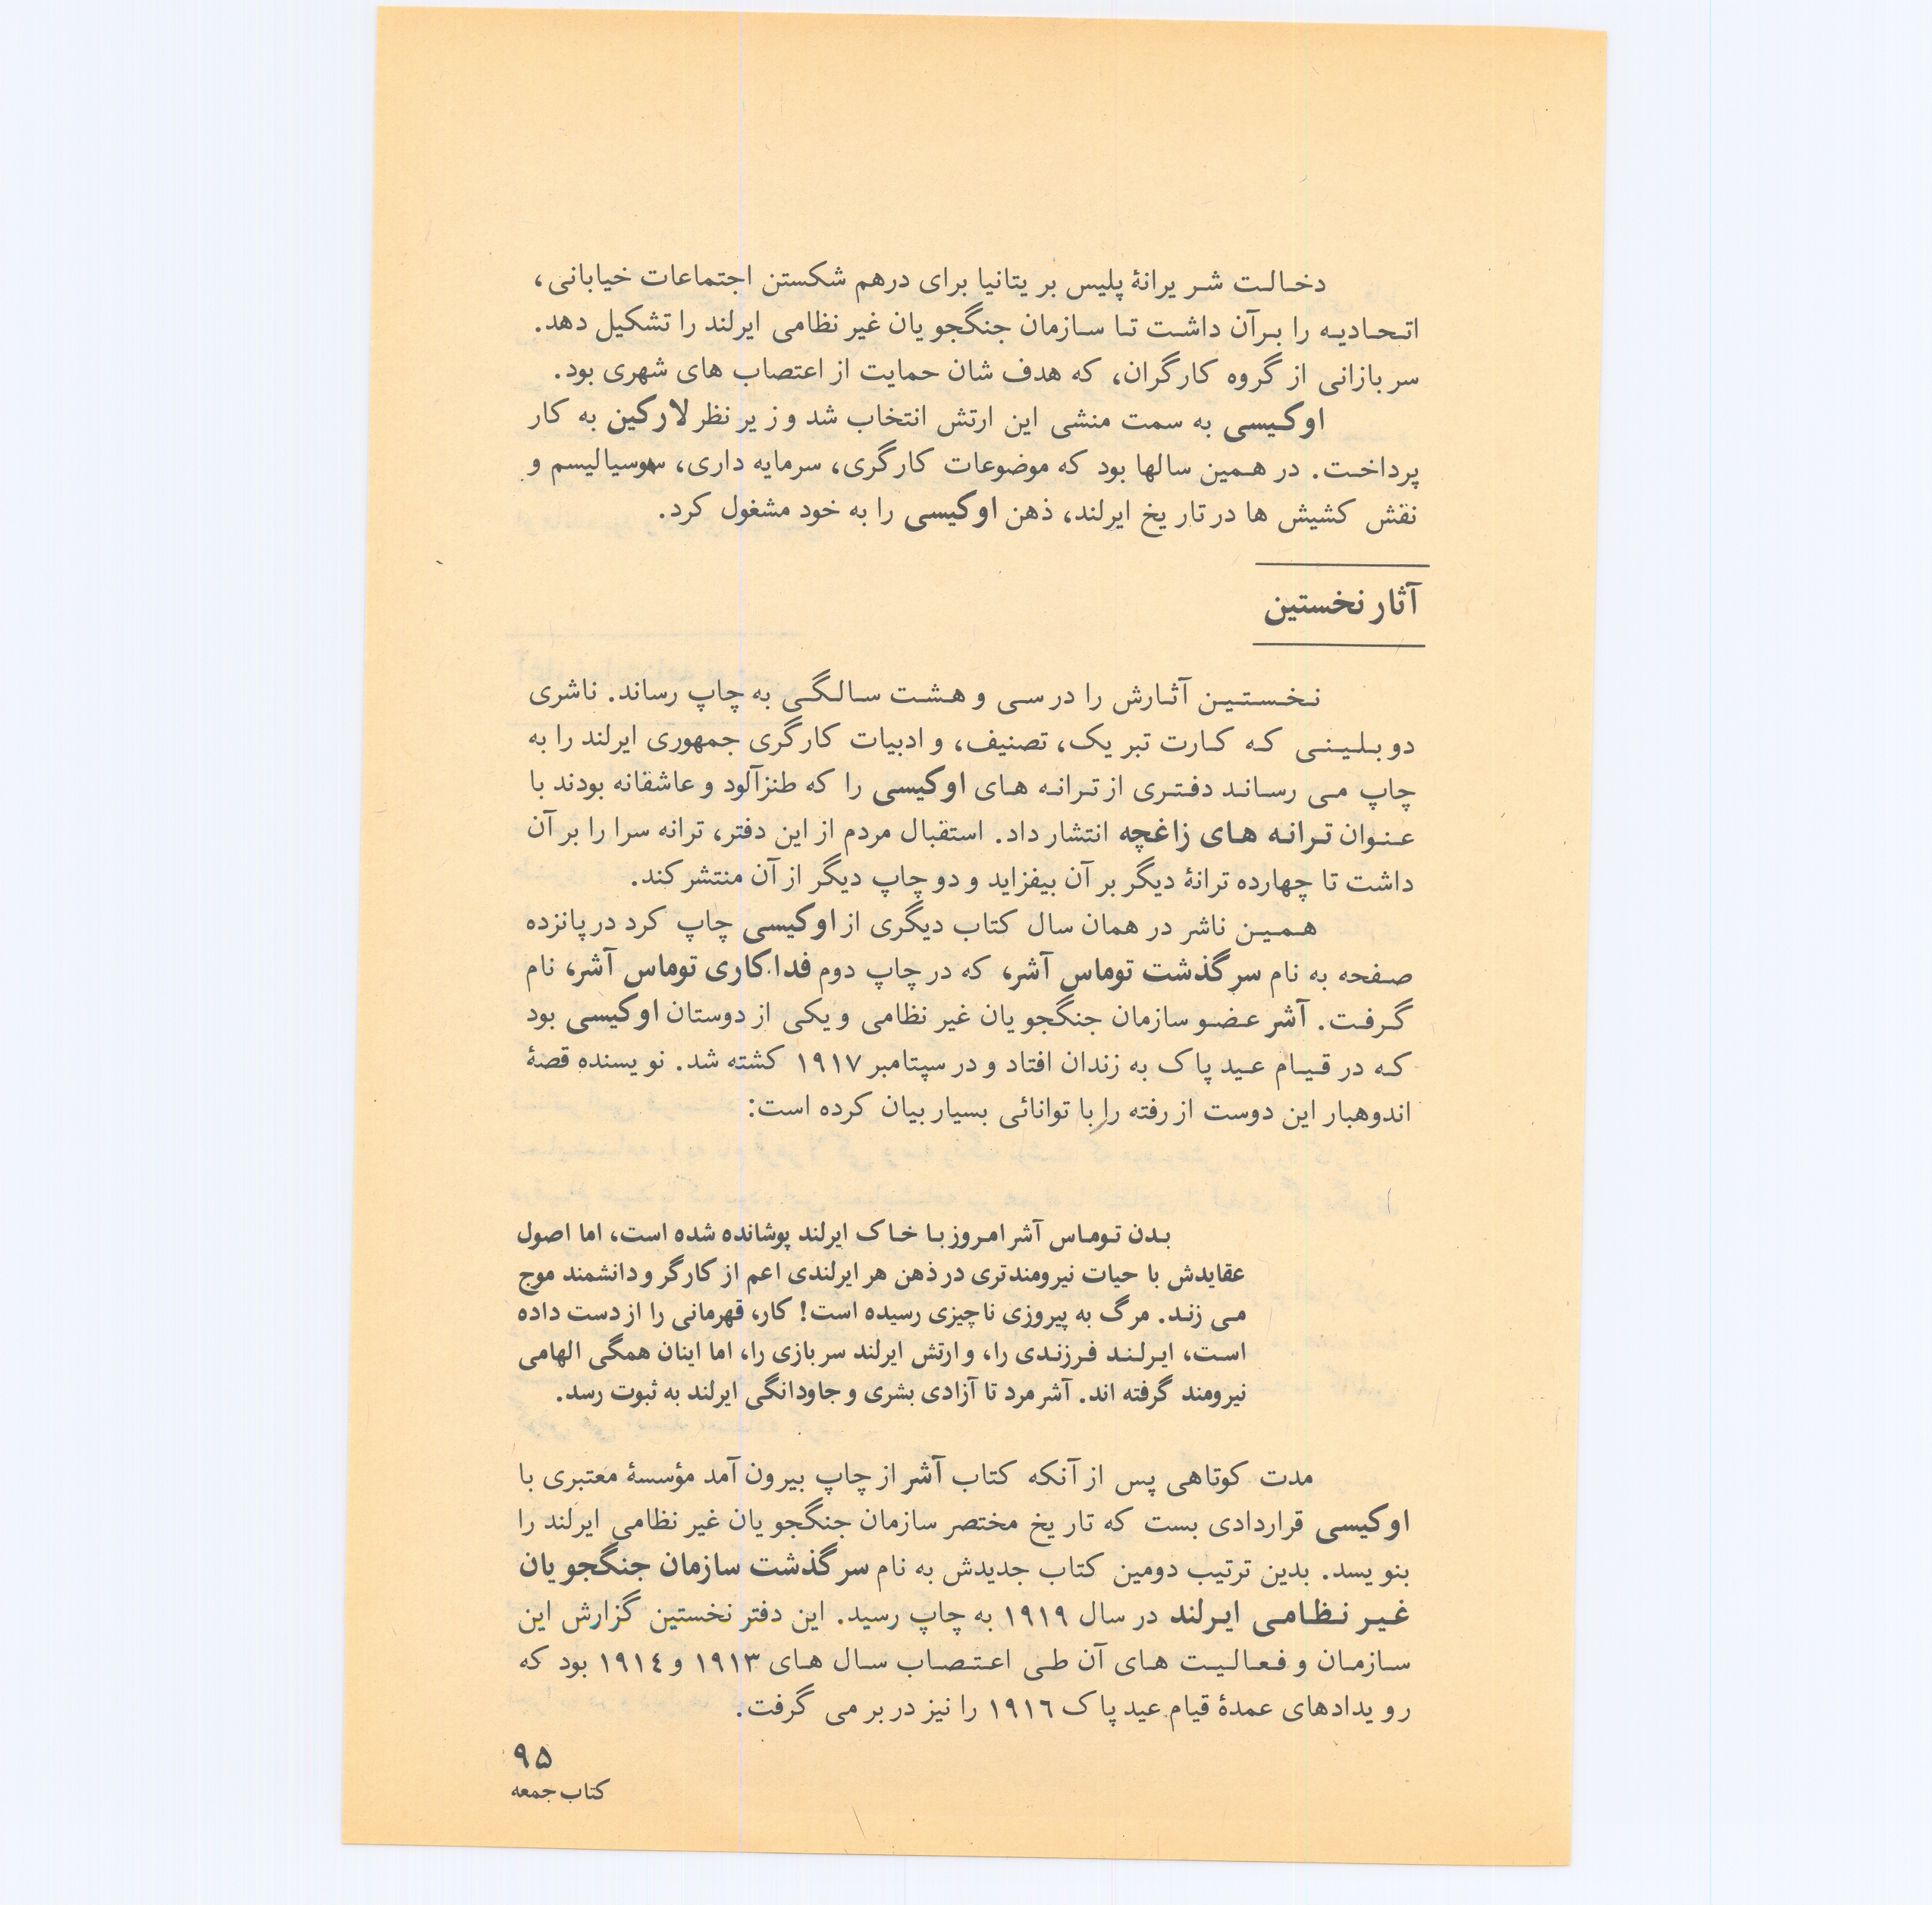 دخالت شریرانهٔ پلیس بریتانیا برای درهم شکستن اجتماعات خیابانی،
اتحادیه را برآن داشت تا سازمان جنگجویان غیر نظامی ایرلند را تشکیل دهد.
سربازانی از گروه کارگران، که هدف شان حمایت از اعتصاب های شهری بود.
اوکیسی به سمت منشی این ارتش انتخاب شد و زیر نظر لارکین به کار
پرداخت. در همین سالها بود که موضوعات کارگری، سرمایه داری، سوسیالیسم و
نقش کشیش ها در تاریخ ایرلند، ذهن اوکیسی را به خود مشغول کرد.
آثار نخستین
نخستین آثارش را در سی و هشت سالگی به چاپ رساند. ناشری
دوبلینی که کارت تبریک، تصنیف، و ادبیات کارگری جمهوری ایرلند را به
چاپ می رساند دفتری از ترانه های اوکیسی را که طنزآلود و عاشقانه بودند با
عنوان ترانه های زاغچه انتشار داد. استقبال مردم از این دفتر، ترانه سرا را بر آن
داشت تا چهارده ترانهٔ دیگر بر آن بیفزاید و دو چاپ دیگر از آن منتشر کند.
همین ناشر در همان سال کتاب دیگری از اوکیسی چاپ کرد در پانزده
صفحه به نام سرگذشت توماس آشر، که در چاپ دوم فداکاری توماس آشر، نام
گرفت. آشر عضو سازمان جنگجویان غیر نظامی و یکی از دوستان اوکیسی بود
که در قیام عید پاک به زندان افتاد و در سپتامبر ۱۹۱۷ کشته شد. نویسنده قصهٔ
اندوهبار این دوست از رفته را با توانائی بسیار بیان کرده است:
بدن توماس آشر امروز با خاک ایرلند پوشانده شده است، اما اصول
عقایدش با حیات نیرومندتری در ذهن هر ایرلندی اعم از کارگر و دانشمند موج
می زند. مرگ به پیروزی ناچیزی رسیده است! کار، قهرمانی را از دست داده
است، ایرلند فرزندی را، و ارتش ایرلند سربازی را، اما اینان همگی الهامی
نیرومند گرفته اند. آشر مرد تا آزادی بشری و جاودانگی ایرلند به ثبوت رسد.
مدت کوتاهی پس از آنکه کتاب آشر از چاپ بیرون آمد مؤسسهٔ معتبری با
اوکیسی قراردادی بست که تاریخ مختصر سازمان جنگجویان غیر نظامی ایرلند را
بنویسد. بدین ترتیب دومین کتاب جدیدش به نام سرگذشت سازمان جنگجویان
غیر نظامی ایرلند در سال ۱۹۱۹ به چاپ رسید. این دفتر نخستین گزارش این
سازمان و فعالیت های آن طی اعتصاب سال های ۱۹۱۳ و ۱۹۱٤ بود که
رویدادهای عمدهٔ قیام عید پاک ۱۹۱٦ را نیز در بر می گرفت.
۹۵
کتاب جمعه